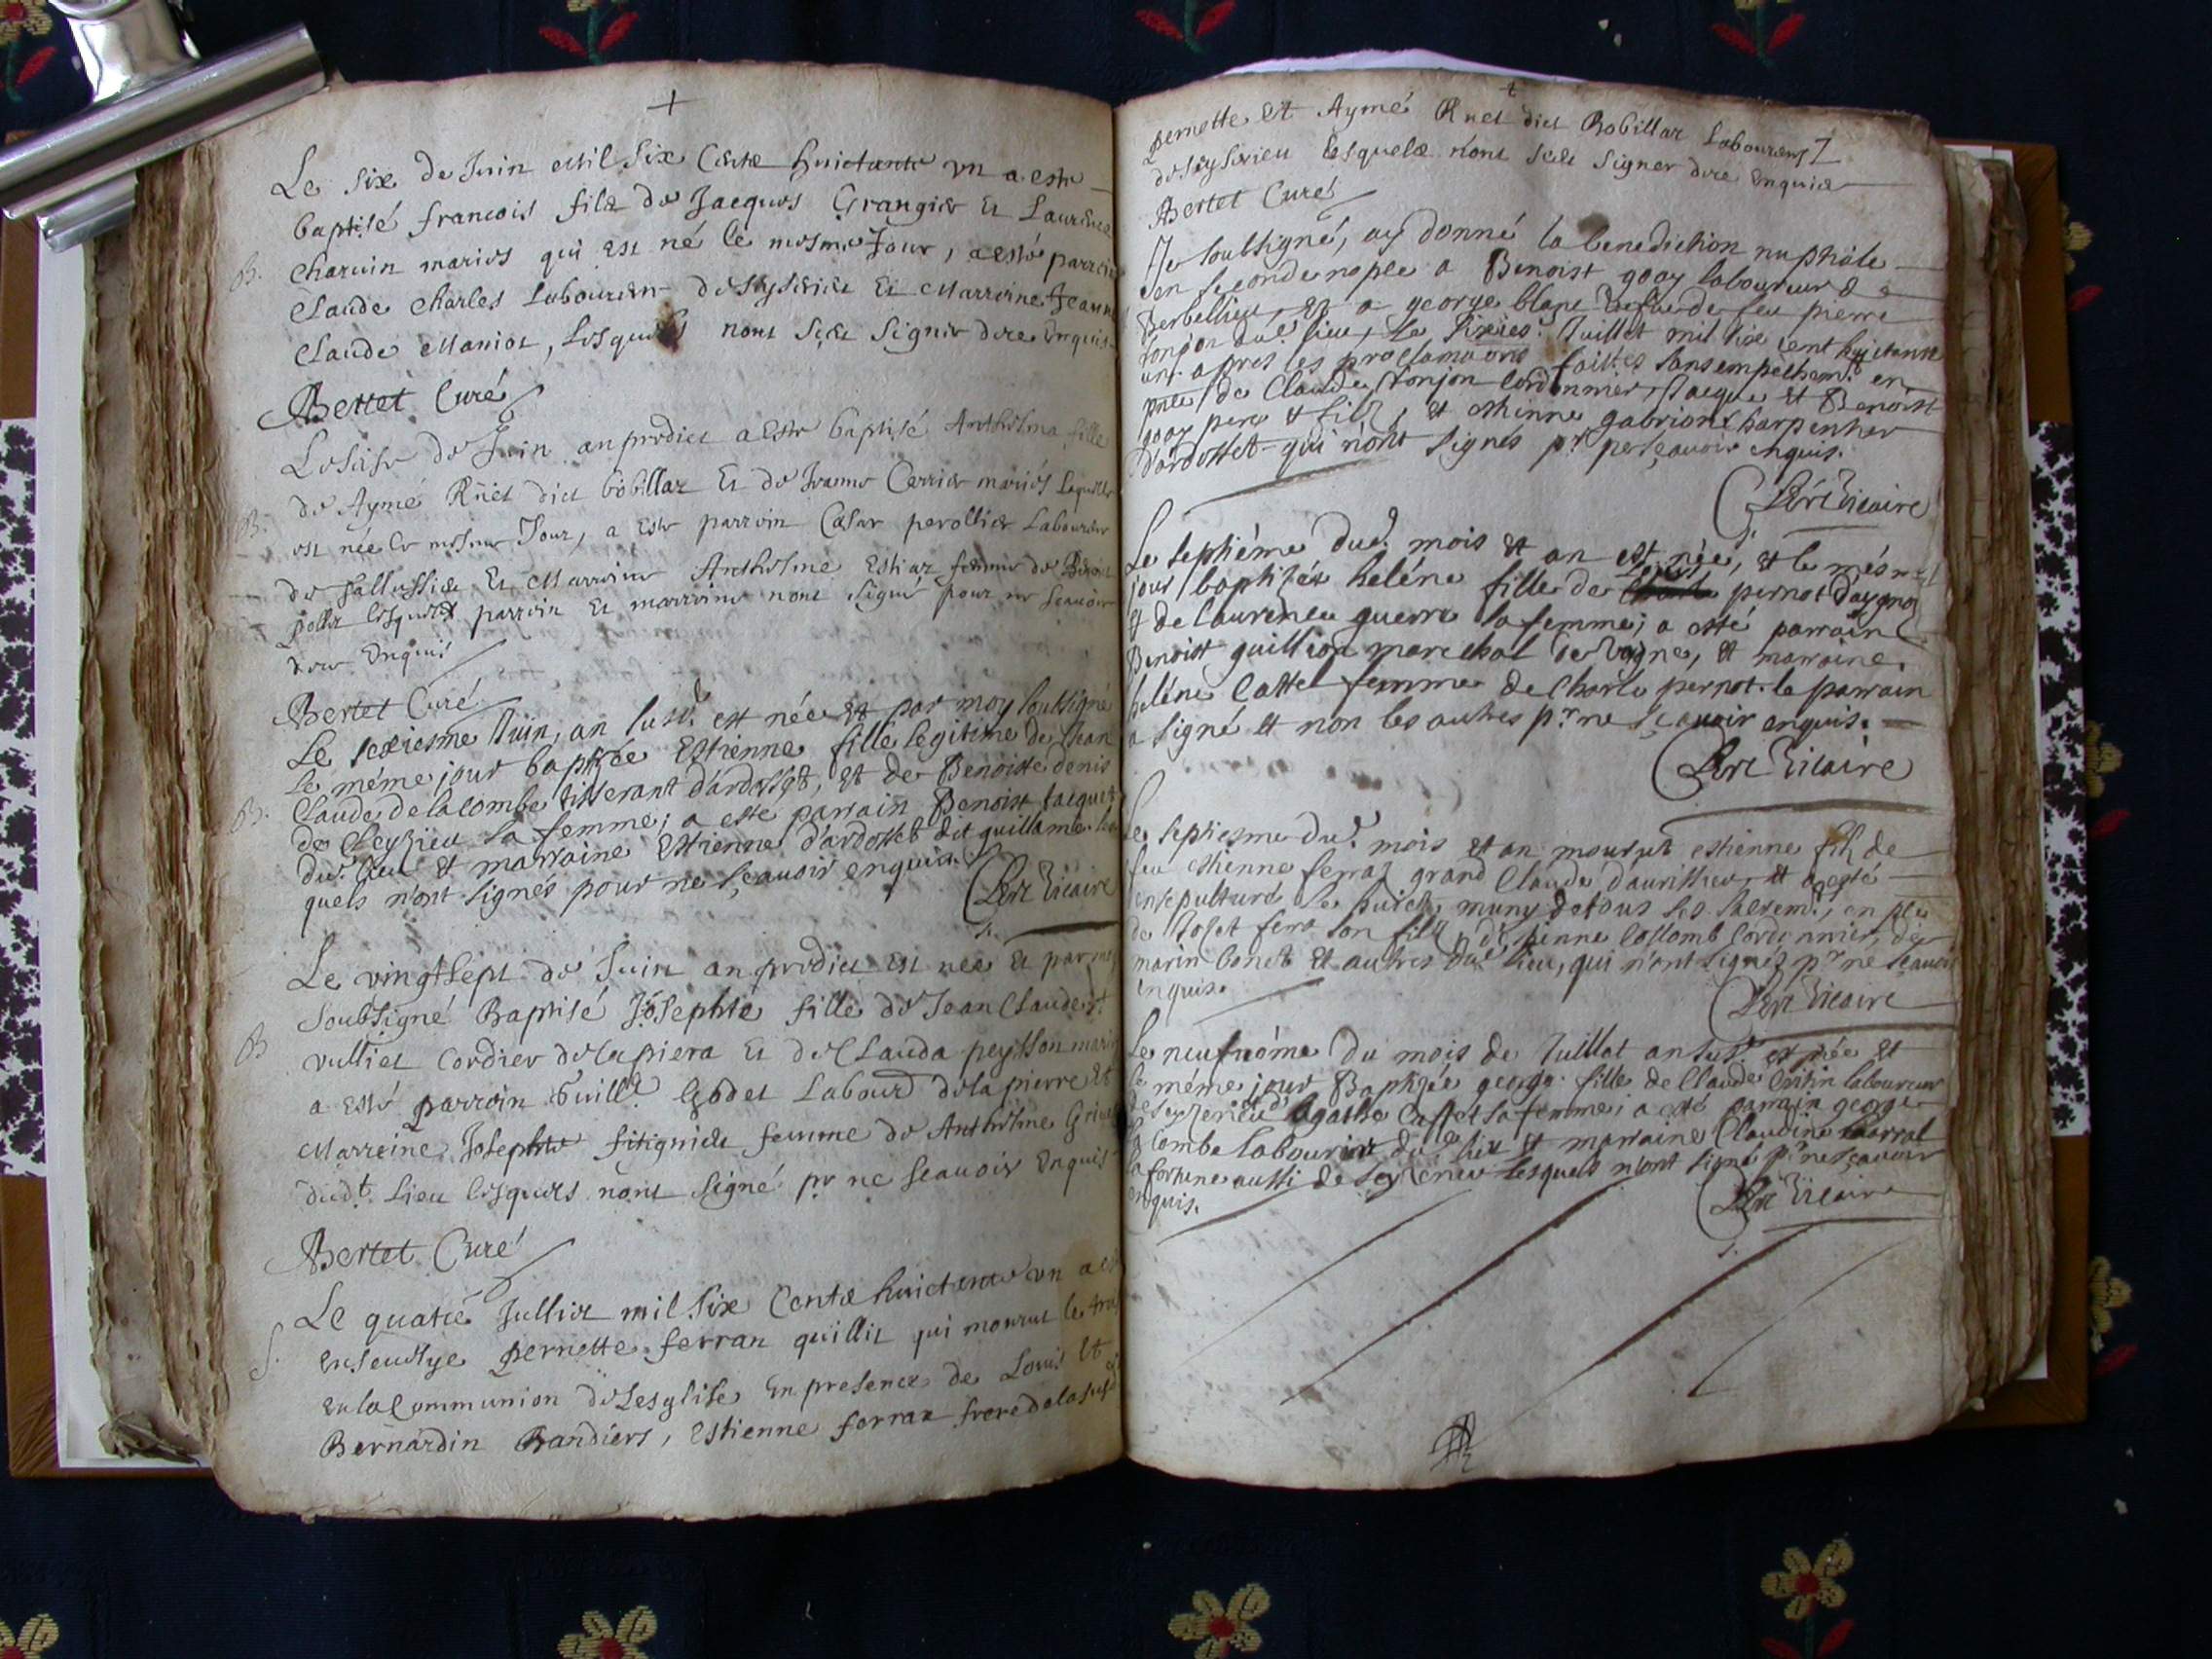 +
Le six de Juin Mil Six Cents huictante un a este
baptisé francois filz de Jacques Grangier Et Laurence
B. Charuin mariés qui est né le mesme Jour, a esté parrein
Claude Charles Laboureur de Et Marreine Jeanne
Claude Maniot, lesquels nont sceu signer de ce Enquis
Bertet Curé
Le de Juin an predict a este baptisé Antholma fille
de Aymé Ruet dict bobillar Et de Carrier mariés Laquelle
B. est née le mesme Jour, a este parroin Cesar perollier Laboureur
de Et Marroine Antholme femme de
lesquels parroin Et marroine nont signé pour ne scavoir
Enquis
Bertet Curé
Le sexiesme Juin, an susd. est née Et par moy soubsigné
Le méme jour baptisée Estienne fille legitime de Jean
B. Claude de lacombe tisserant d'ardosset, et de Benoitte denis
de Ceyzieu sa femme; a esté parrain Benoist Jacquet
dud. lieu et marraine Estienne d'ardosset dit guillame les
quels n'ont signés pour ne sçavoir enquis.
Vicaire
Le vingt sept de Juin an predict Est née Et par moy
Soubsigné Baptisé Josephte fille de Jean Claude
B vulliet Cordier de lapiera Et de Clauda peysson mariés
a Esté parroin Guille Godet Labour de lapierre Et
Marreine Josephte femme de Antholme
dudt. lieu lesquels nont signé pr ne scavoir Enquis
Bertet Curé
Le quatre Julliet mil Six Cents huictante un a esté
S. Ensevelye pernette ferran quillit qui mourut le trois
En la Communion de Lesglise En presence de Louis Et
Bernardin Randiers, Estienne ferraz frere de la susd
pernette Et Aymé Ruet dict Bobillar Laboureurs
de lesquels n'ont sceu signer de ce Enquis
Bertet Curé
Je soubsigné, ay donné la benediction nuptiale
en seconde nople a Benoist goay laboureur de
Berbellieu, et a george blanc vefve de feu pierre
tonjon dud. lieu, Le sixies. Juillet mil six cent huictante
un. apres les proclamaons faittes sans empéchemt. en
pnce de Claude tonjon Cordonnier, Jacque et Benoist
goay pere et filz, et Charpentier
d'ardosset qui n'ont signés pr. ne sçauoir enquis.
Vicaire
Le septiéme dud. mois et an est née, et le mém
jour baptizée heléne fille de pernot d'aygno
et de laurence guerre sa femme; a esté parrain
Benoist guillion marechal de et marraine
heléne Castel femme de Charle pernot. le parrain
a signé et non les autres pr. ne sçauoir enquis.
Vicaire
Le septiesme dud. mois et an mourut estienne fils de
feu estienne ferraz grand Claude d'aurissieu, et a esté
ensepulturé le muny de tous les Sacremt., en pce
de son fils Cordonnier, de
marin bonet et autres dud lieu, qui n'ont signéz pr ne scauoir
enquis.
Vicaire
Le neufuéme du mois de Juillet an susd. est née et
le méme jour Baptizée george fille de Claude laboureur
de et d'Agathe Castel sa femme; a esté parrain george
la Combe laboureur dud. lieu et marraine Claudine
la fortune aussi de lesquels n'ont signé pr. ne sçauoir
enquis.
Vicaire